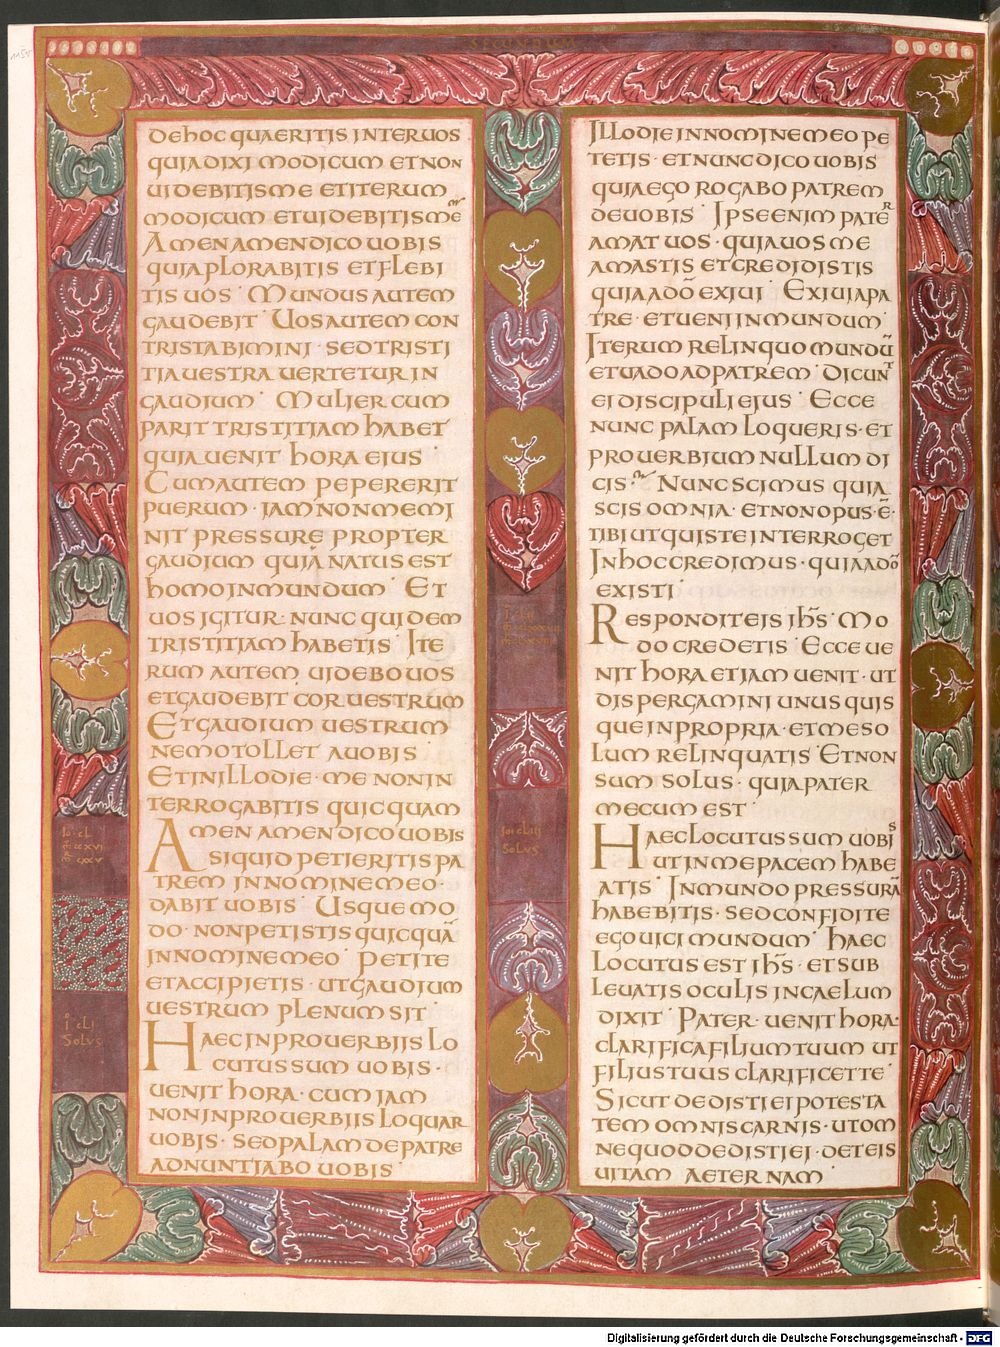 SECUNDUM
DE HOC QUAERITIS INTER UOS
QUIA DIXI MODICUM ET NON
UIDEBITIS ME ET ITERUM
MODICUM ET UIDEBITIS ME
AMEN AMEN DICO UOBIS
QUIA PLORABITIS ET FLEBI
TIS UOS · MUNDUS AUTEM
GAUDEBIT · UOS AUTEM CON
TRISTABIMINI · SED TRISTI
TIA UESTRA UERTETUR IN
GAUDIUM · MULIER CUM
PARIT TRISTITIAM HABET
QUIA UENIT HORA EIUS
CUM AUTEM PEPERERIT
PUERUM · IAM NON MEMI
NIT PRESSURE PROPTER
GAUDIUM QUIA NATUS EST
HOMO IN MUNDUM · ET
UOS IGITUR · NUNC QUIDEM
TRISTITIAM HABETIS · ITE
RUM AUTEM UIDEBO UOS
ET GAUDEBIT COR UESTRUM
ET GAUDIUM UESTRUM
NEMO TOLLET A UOBIS
ET IN ILLO DIE · ME NON IN
TERROGABITIS QUICQUAM
AMEN AMEN DICO UOBIS
SI QUID PETIERITIS PA
TREM IN NOMINE MEO ·
DABIT UOBIS · USQUE MO
DO · NON PETISTIS QUICQUĀ
IN NOMINE MEO · PETITE
ET ACCIPIETIS · UT GAUDIUM
UESTRUM PLENUM SIT ·
HAEC IN PROUERBIIS LO
CUTUS SUM UOBIS ·
UENIT HORA · CUM IAM
NON IN PROUERBIIS LOQUAR
UOBIS · SED PALAM DE PATRE
ADNUNTIABO UOBIS ·
ILLO DIE IN NOMINE MEO PE
TETIS · ET NUNC DICO UOBIS
QUIA EGO ROGABO PATREM
DE UOBIS · IPSE ENIM PATER
AMAT UOS · QUIA UOS ME
AMASTIS ET CREDIDISTIS
QUIA A DŌ EXIUI · EXIUI A PA
TRE · ET UENI IN MUNDUM ·
ITERUM RELINQUO MUNDŪ
ET UADO AD PATREM · DICUNT
EI DISCIPULI EIUS · ECCE
NUNC PALAM LOQUERIS · ET
PROUERBIUM NULLUM DI
CIS · NUNC SCIMUS QUIA
SCIS OMNIA · ET NON OPUS Ē ·
TIBI UT QUIS TE INTERROGET
IN HOC CREDIMUS · QUIA A DŌ
EXISTI ·
RESPONDIT EIS IHS̄ · MO
DO CREDETIS · ECCE UE
NIT HORA ET IAM UENIT · UT
DISPERGAMINI UNUSQUIS
QUE IN PROPRIA · ET ME SO
LUM RELINQUATIS · ET NON
SUM SOLUS · QUIA PATER
MECUM EST ·
HAEC LOCUTUS SUM UOBIS
UT IN ME PACEM HABE
ATIS · IN MUNDO PRESSURĀ
HABEBITIS · SED CONFIDITE
EGO UICI MUNDUM · HAEC
LOCUTUS EST IHS̄ · ET SUB
LEUATIS OCULIS IN CAELUM
DIXIT · PATER · UENIT HORA ·
CLARIFICA FILIUM TUUM UT
FILIUS TUUS CLARIFICET TE ·
SICUT DEDISTI EI POTESTA
TEM OMNIS CARNIS · UT OM
NE QUOD DEDISTI EI · DET EIS
UITAM AETERNAM ·
IO · CLI
SOLUS
IOI CLIII
SOLUS
Digitalisierung gefördert durch die Deutsche Forschungsgemeinschaft - DFG